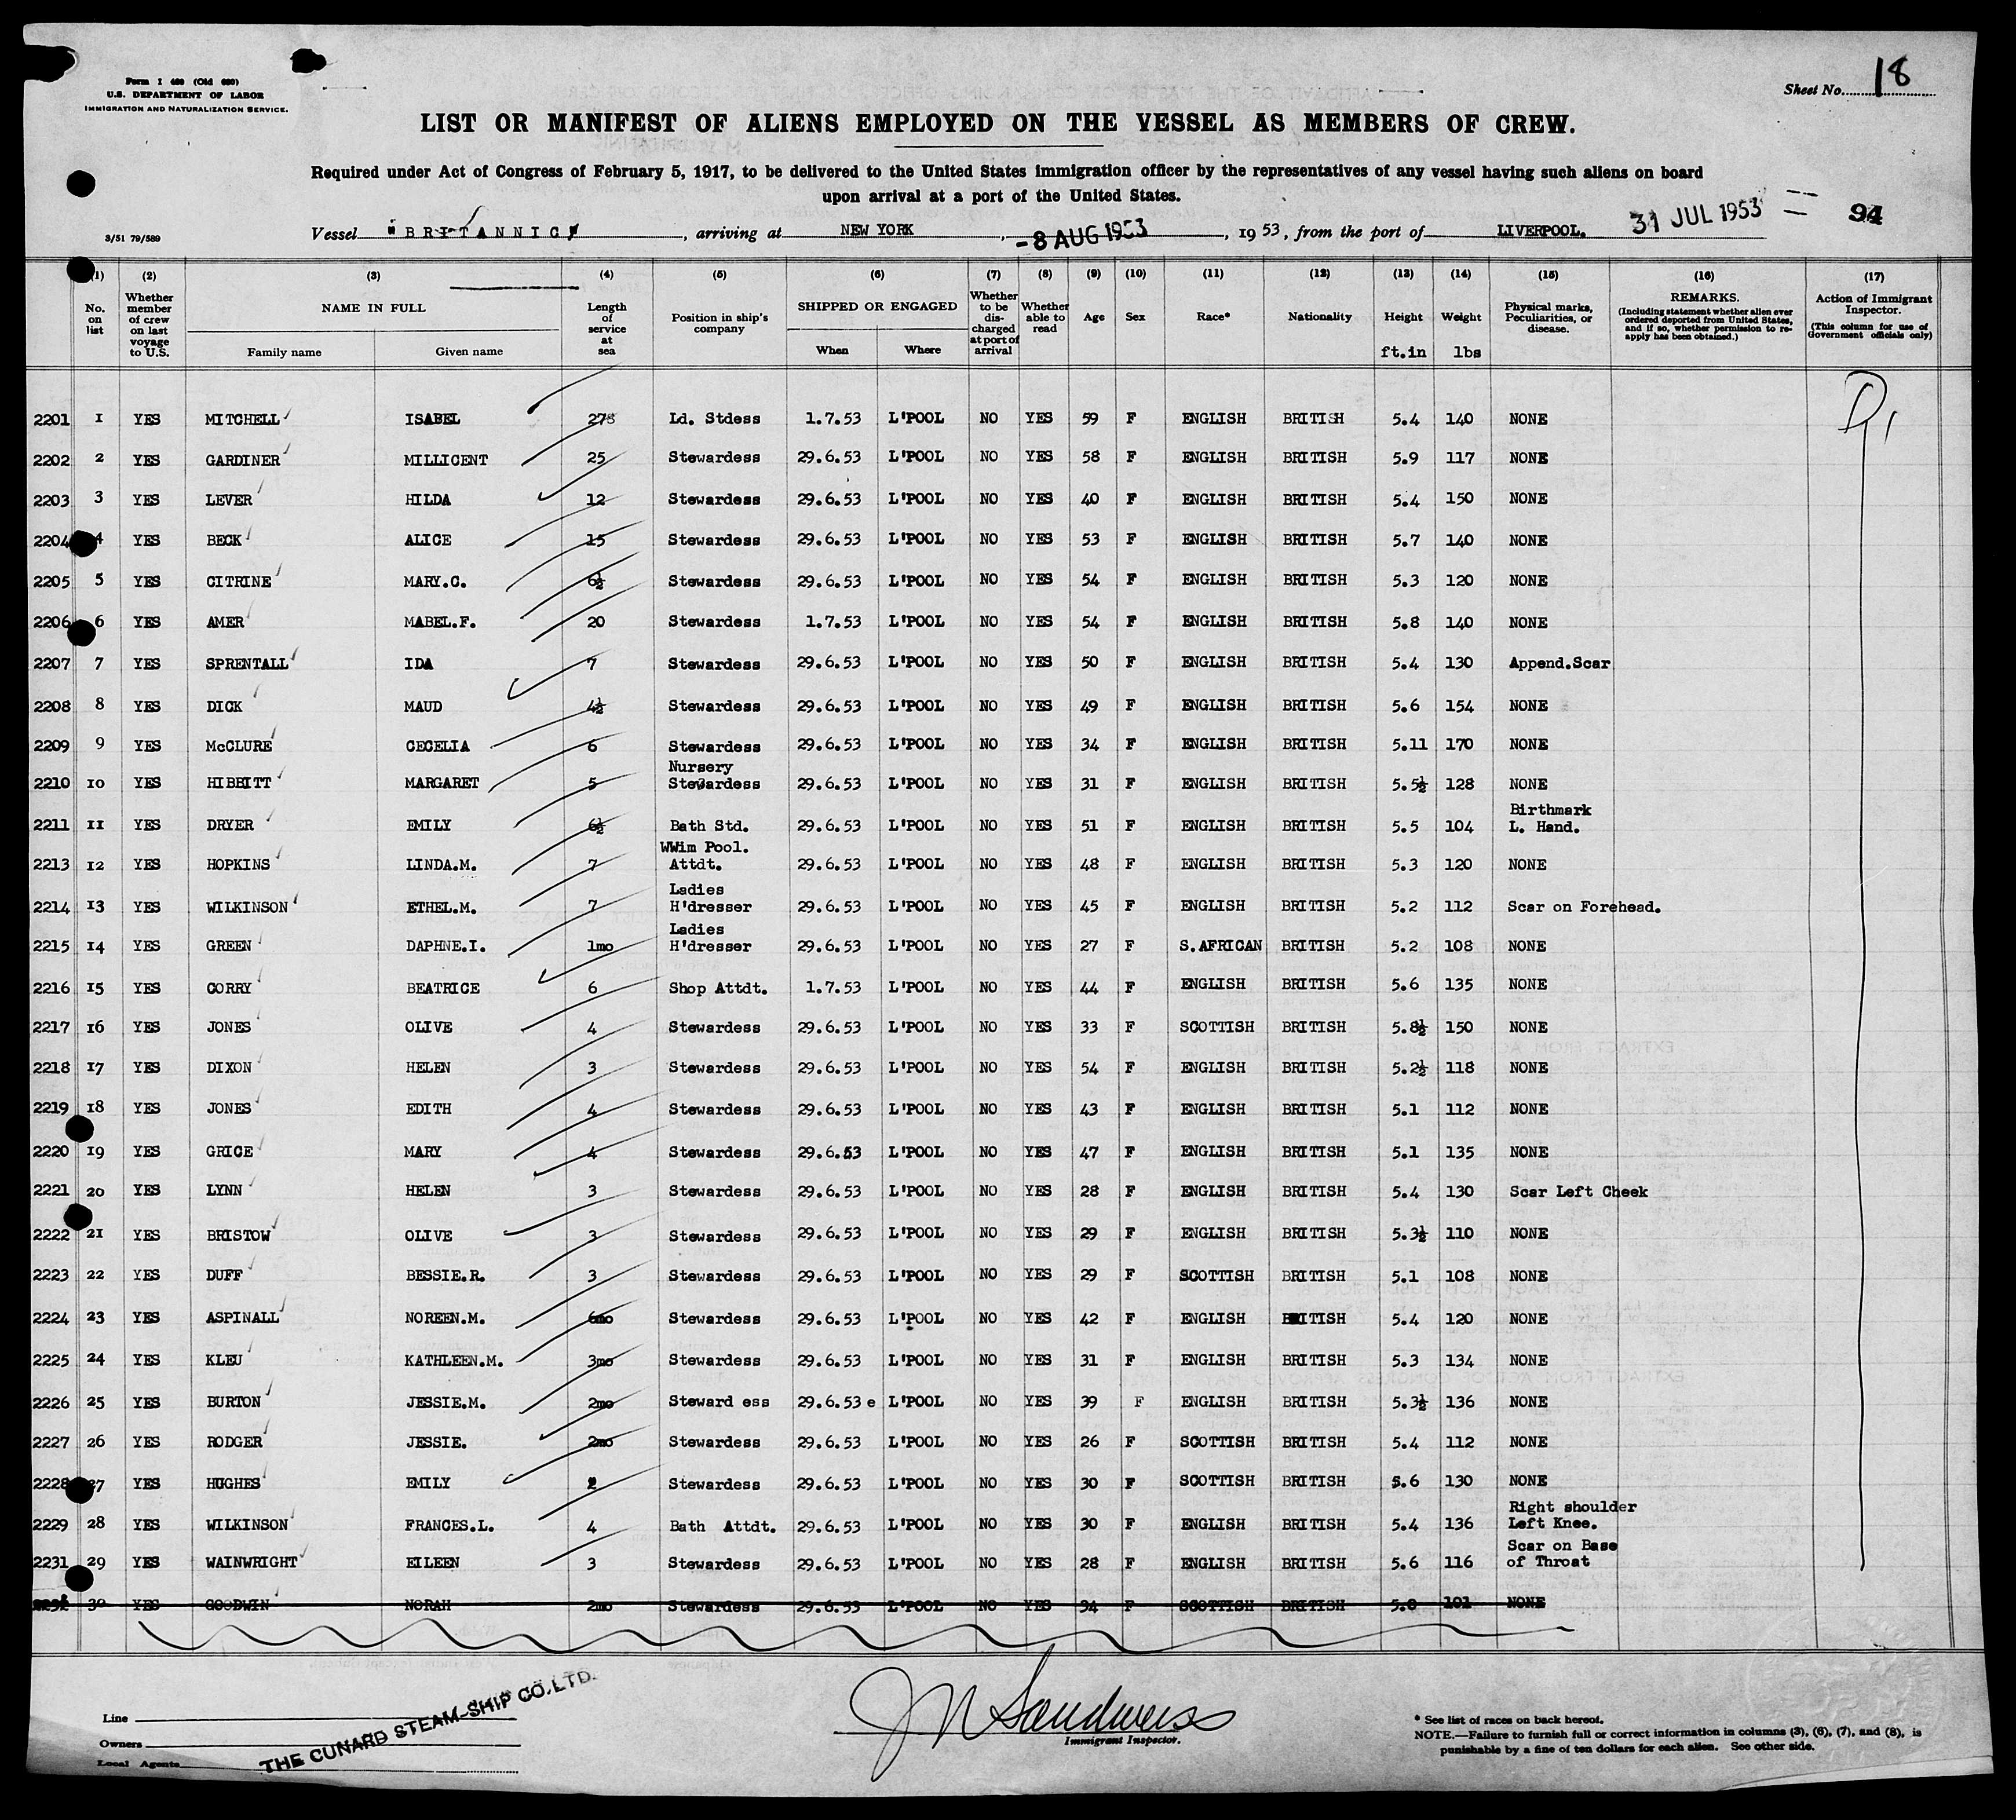 Form I 489 (Old 680)
U.S. DEPARTMENT OF LABOR
IMMIGRATION AND NATURALIZATION SERVICE.
Sheet No. 18
LIST OR MANIFEST OF ALIENS EMPLOYED ON THE VESSEL AS MEMBERS OF CREW.
Required under Act of Congress of February 5, 1917, to be delivered to the United States immigration officer by the representatives of any vessel having such aliens on board
upon arrival at a port of the United States.
3/51 79/589
Vessel "BRITANNIC", arriving at NEW YORK, -8 AUG 1953, 1953, from the port of LIVERPOOL. 31 JUL 1953 94
(1) (2) (3) (4) (5) (6) (7) (8) (9) (10) (11) (12) (13) (14) (15) (16) (17)
No. on list
Whether member of crew on last voyage to U.S.
NAME IN FULL
Family name
Given name
Length of service at sea
Position in ship's company
SHIPPED OR ENGAGED
When
Where
Whether to be discharged at port of arrival
Whether able to read
Age
Sex
Race*
Nationality
Height
ft.in
Weight
lbs
Physical marks, Peculiarities, or disease.
REMARKS.
(Including statement whether alien ever ordered deported from United States, and if so, whether permission to re-apply has been obtained.)
Action of Immigrant Inspector.
(This column for use of Government officials only)
2201 1 YES MITCHELL ISABEL 27 Ld. Stdess 1.7.53 L'POOL NO YES 59 F ENGLISH BRITISH 5.4 140 NONE
2202 2 YES GARDINER MILLICENT 25 Stewardess 29.6.53 L'POOL NO YES 58 F ENGLISH BRITISH 5.9 117 NONE
2203 3 YES LEVER HILDA 12 Stewardess 29.6.53 L'POOL NO YES 40 F ENGLISH BRITISH 5.4 150 NONE
2204 4 YES BECK ALICE 15 Stewardess 29.6.53 L'POOL NO YES 53 F ENGLISH BRITISH 5.7 140 NONE
2205 5 YES CITRINE MARY.C. 6½ Stewardess 29.6.53 L'POOL NO YES 54 F ENGLISH BRITISH 5.3 120 NONE
2206 6 YES AMER MABEL.F. 20 Stewardess 1.7.53 L'POOL NO YES 54 F ENGLISH BRITISH 5.8 140 NONE
2207 7 YES SPRENTALL IDA 7 Stewardess 29.6.53 L'POOL NO YES 50 F ENGLISH BRITISH 5.4 130 Append.Scar
2208 8 YES DICK MAUD 4½ Stewardess 29.6.53 L'POOL NO YES 49 F ENGLISH BRITISH 5.6 154 NONE
2209 9 YES McCLURE CECELIA 6 Stewardess 29.6.53 L'POOL NO YES 34 F ENGLISH BRITISH 5.11 170 NONE
2210 10 YES HIBBITT MARGARET 5 Nursery Stewardess 29.6.53 L'POOL NO YES 31 F ENGLISH BRITISH 5.5½ 128 NONE
2211 11 YES DRYER EMILY 6½ Bath Std. 29.6.53 L'POOL NO YES 51 F ENGLISH BRITISH 5.5 104 Birthmark L. Hand.
2213 12 YES HOPKINS LINDA.M. 7 WWim Pool. Attdt. 29.6.53 L'POOL NO YES 48 F ENGLISH BRITISH 5.3 120 NONE
2214 13 YES WILKINSON ETHEL.M. 7 Ladies H'dresser 29.6.53 L'POOL NO YES 45 F ENGLISH BRITISH 5.2 112 Scar on Forehead.
2215 14 YES GREEN DAPHNE.I. 1mo Ladies H'dresser 29.6.53 L'POOL NO YES 27 F S.AFRICAN BRITISH 5.2 108 NONE
2216 15 YES CORRY BEATRICE 6 Shop Attdt. 1.7.53 L'POOL NO YES 44 F ENGLISH BRITISH 5.6 135 NONE
2217 16 YES JONES OLIVE 4 Stewardess 29.6.53 L'POOL NO YES 33 F SCOTTISH BRITISH 5.8½ 150 NONE
2218 17 YES DIXON HELEN 3 Stewardess 29.6.53 L'POOL NO YES 54 F ENGLISH BRITISH 5.2½ 118 NONE
2219 18 YES JONES EDITH 4 Stewardess 29.6.53 L'POOL NO YES 43 F ENGLISH BRITISH 5.1 112 NONE
2220 19 YES GRICE MARY 4 Stewardess 29.6.53 L'POOL NO YES 47 F ENGLISH BRITISH 5.1 135 NONE
2221 20 YES LYNN HELEN 3 Stewardess 29.6.53 L'POOL NO YES 28 F ENGLISH BRITISH 5.4 130 Scar Left Cheek
2222 21 YES BRISTOW OLIVE 3 Stewardess 29.6.53 L'POOL NO YES 29 F ENGLISH BRITISH 5.3½ 110 NONE
2223 22 YES DUFF BESSIE.R. 3 Stewardess 29.6.53 L'POOL NO YES 29 F SCOTTISH BRITISH 5.1 108 NONE
2224 23 YES ASPINALL NOREEN.M. 6mo Stewardess 29.6.53 L'POOL NO YES 42 F ENGLISH BRITISH 5.4 120 NONE
2225 24 YES KLEU KATHLEEN.M. 3mo Stewardess 29.6.53 L'POOL NO YES 31 F ENGLISH BRITISH 5.3 134 NONE
2226 25 YES BURTON JESSIE.M. 2mo Steward ess 29.6.53 e L'POOL NO YES 39 F ENGLISH BRITISH 5.3½ 136 NONE
2227 26 YES RODGER JESSIE. 2mo Stewardess 29.6.53 L'POOL NO YES 26 F SCOTTISH BRITISH 5.4 112 NONE
2228 27 YES HUGHES EMILY 2 Stewardess 29.6.53 L'POOL NO YES 30 F SCOTTISH BRITISH 5.6 130 NONE
2229 28 YES WILKINSON FRANCES.L. 4 Bath Attdt. 29.6.53 L'POOL NO YES 30 F ENGLISH BRITISH 5.4 136 Right shoulder Left Knee.
2231 29 YES WAINWRIGHT EILEEN 3 Stewardess 29.6.53 L'POOL NO YES 28 F ENGLISH BRITISH 5.6 116 Scar on Base of Throat
2232 30 YES GOODWIN NORAH 2mo Stewardess 29.6.53 L'POOL NO YES 34 F SCOTTISH BRITISH 5.0 101 NONE
Line
Owners
Local Agents
THE CUNARD STEAM-SHIP CO. LTD.
J N Sandweiss
Immigrant Inspector.
* See list of races on back hereof.
NOTE.—Failure to furnish full or correct information in columns (3), (6), (7), and (8), is
punishable by a fine of ten dollars for each alien. See other side.